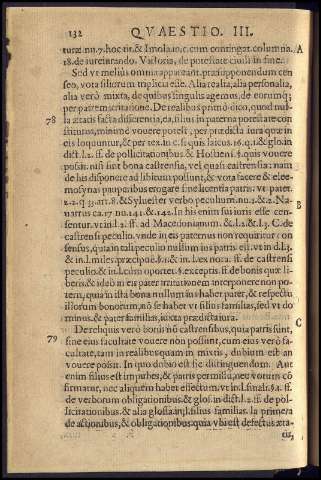 132 QVAESTIO. III.
turæ nu. 7. hoc tit. & Imola in c. cum contingat columna. A
18. de iureiurando. Victoria, de potestate ciuili in fine.
Sed vt melius omnia appareant. præsupponendum cen
seo, vota filiorum triplicia esse. Alia realia, alia personalia,
alia verò mixta, de quibus singulis agemus, de eorumq;
per patrem irritatione. De realibus primò dico, quod nul-
78 la ætatis facta differencia, ea, filius in paterna potestate con
stitutus, minimè vouere potest, per prædicta iura quæ in
eis loquuntur, & per tex. in c. si quis laicus. 16. q. 1. & glo. in
dict. l. 2. ff. de pollicitationibus. & Hostien. §. quis vouere
possit. nisi sint bona castrensia, vel quasi castrensia: nam
de his disponere ad libitum possunt, & vota facere & elee-
mosynas pauperibus erogare sine licentia patris. vt patet.
2. 2. q. 33. art. 8. & Syluester verbo peculium. nu. 1. & 2. Na-
uarrus ca. 17. nu. 141. & 142. In his enim sui iuris esse cen- B
sentur. vt in l. 2. ff. ad Macedonianum. & l. 2. & l. 3. C. de
castrensi peculio. vnde in eis paternus non requiritur con
sensus, quia in tali peculio nullum ius patris est. vt in d. l. 3.
& in l. miles. præcipuè. §. 1. & in l. ex nota. ff. de castrensi
peculio. & in l. cùm oportet. §. exceptis. ff. de bonis quæ li-
beris, & ideò in eis pater irritationem interponere non po-
test, quia in ista bona nullum ius habet pater, & respectu
illorum bonorum, nõ se habet vt filius familias, sed vt do
minus, & pater familias, iuxta prædicta iura.
De reliquis verò bonis nõ castrensibus, quia patris sunt, C
79 sine eius facultate vouere non possunt, cum eius verò fa-
cultate, tam in realibus quam in mixtis, dubium est an
vouere possit. In quo dubio est sic distinguendum. Aut
enim filius est impubes, & patris permissu, nec votum cõ
firmatur, nec aliquem habet effectum. vt in l. final. §. 2. ff.
de verborum obligationibus. & glos. in dict. l. 2. ff. de pol-
licitationibus. & alia glossa in l. filius familias. la primera
de actionibus, & obligationibus. quia vbi est defectus æta-
tis,